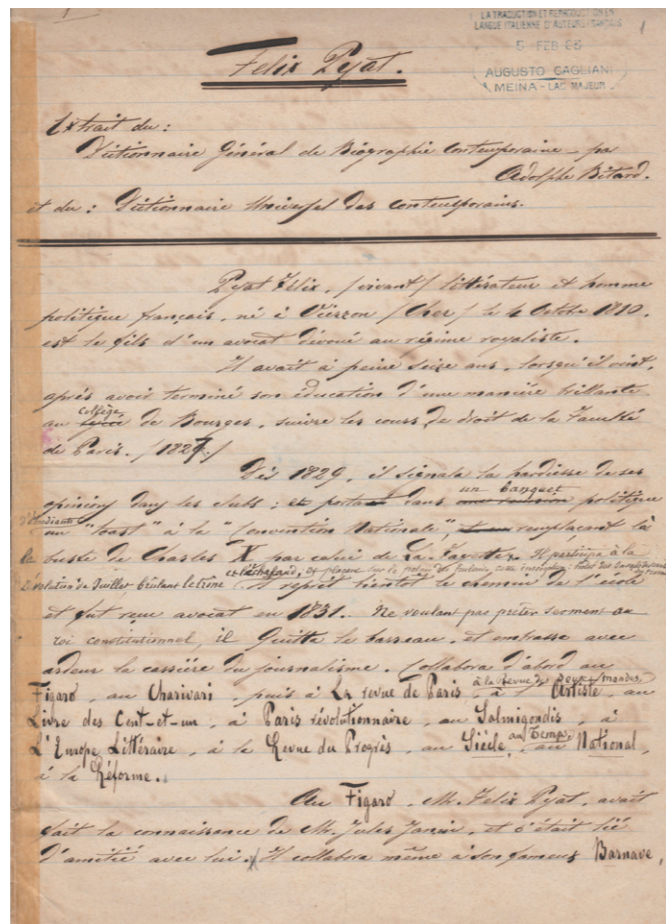 1
LA TRADUCTION ET REPRODUCTION EN
LANGUE ITALIENNE D'AUTEURS FRANÇAIS
5 FEB 86
AUGUSTO GAGLIANI
MEINA - LAC MAJEUR
Felix Pyat.
Extrait du :
Dictionnaire Général de Biographie Contemporaine - par
Adolphe Bitard.
et du : Dictionnaire Universel des contemporains.
Pyat Félix, (vivant) littérateur et homme
politique français, né à Vierzon (Cher) le 4 Octobre 1810.
est le fils d'un avocat dévoué au régime royaliste.
Il avait à peine seize ans, lorsqu'il vint,
après avoir terminé son éducation d'une manière brillante
au collège de Bourges, suivre les cours de droit de la Faculté
de Paris. (1827)
Dès 1829, il signala la hardiesse de ses
opinions dans les clubs : et porta dans un banquet politique
d'étudiants un "toast" à la "Convention Nationale", remplaçant là
le buste de Charles X par celui de La Fayette. Il participa à la
Révolution de Juillet brûlant le trône
Il reprit bientôt le chemin de l'école
et fut reçu avocat en 1831. Ne voulant pas prêter serment au
roi constitutionnel, il quitta le barreau, et embrasse avec
ardeur la carrière du journalisme. Collabora d'abord au
Figaro, au Charivari, puis à La revue de Paris, à la Revue des deux mondes, à l'Artiste, au
Livre des Cent-et-un, à Paris révolutionnaire, au Salmigondis, à
L'Europe Littéraire, à la Revue du Progrès, au Siècle, au Temps, au National,
à la Réforme.
Au Figaro, M. Felix Pyat, avait
fait la connaissance de M. Jules Janin, et s'était lié
d'amitié avec lui. Il collabora même à son fameux Barnave,